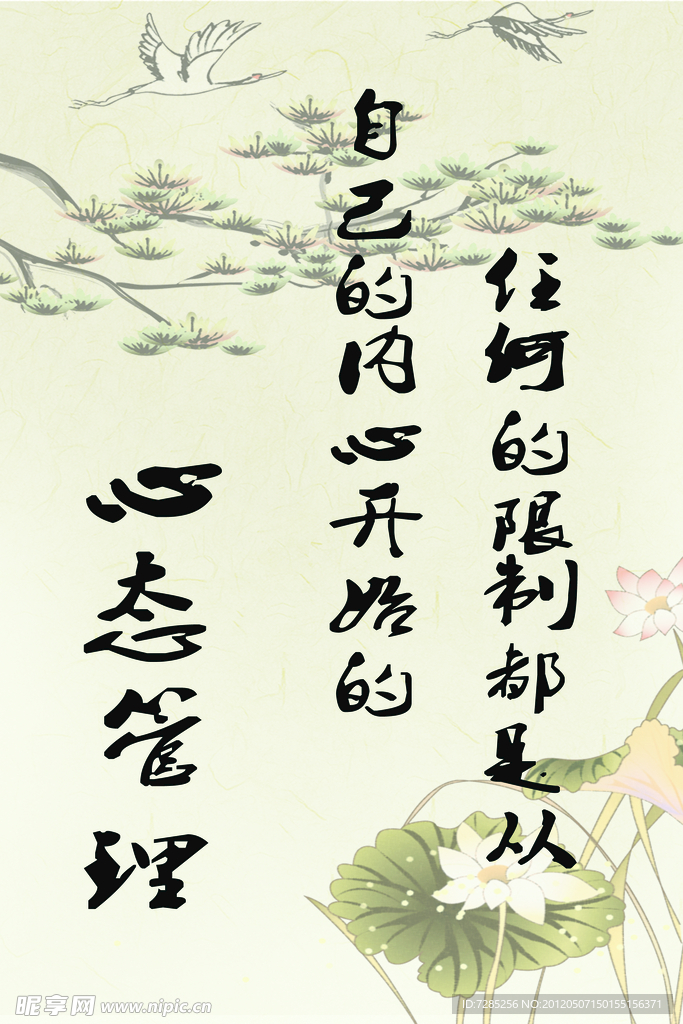 任何的限制都是从
自己的内心开始的
心态管理
昵享网 www.nipic.cn
ID:7285256 NO:20120507150155156371